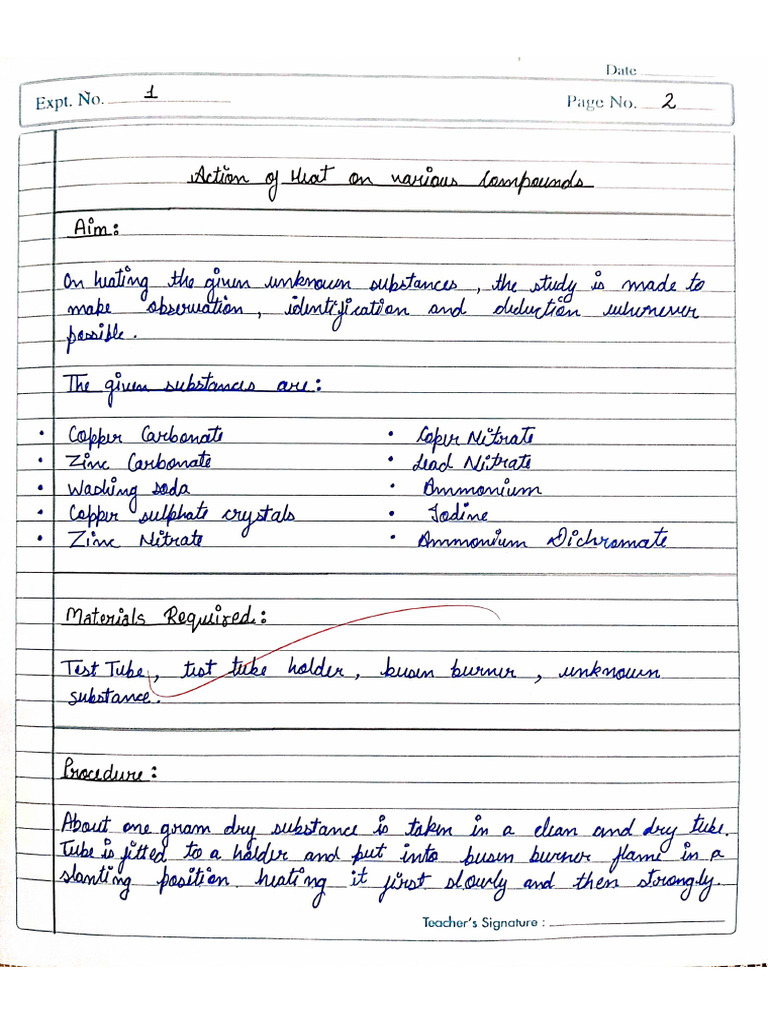 Date
Expt. No. 1
Page No. 2
Action of Heat on various Compounds
Aim:
On heating the given unknown substances, the study is made to
make observation, identification and deduction whenever
possible.
The given substances are:
• Copper Carbonate • Coper Nitrate
• Zinc Carbonate • Lead Nitrate
• Washing soda • Ammonium
• Copper sulphate crystals • Iodine
• Zinc Nitrate • Ammonium Dichromate
Materials Required:
Test Tube, test tube holder, busen burner, unknown
substance.
Procedure:
About one gram dry substance is taken in a clean and dry tube.
Tube is fitted to a holder and put into busen burner flame in a
slanting position heating it first slowly and then strongly.
Teacher's Signature :